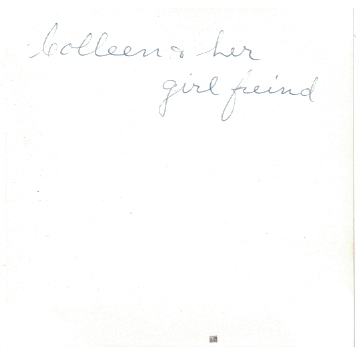 Colleen & her
girl freind